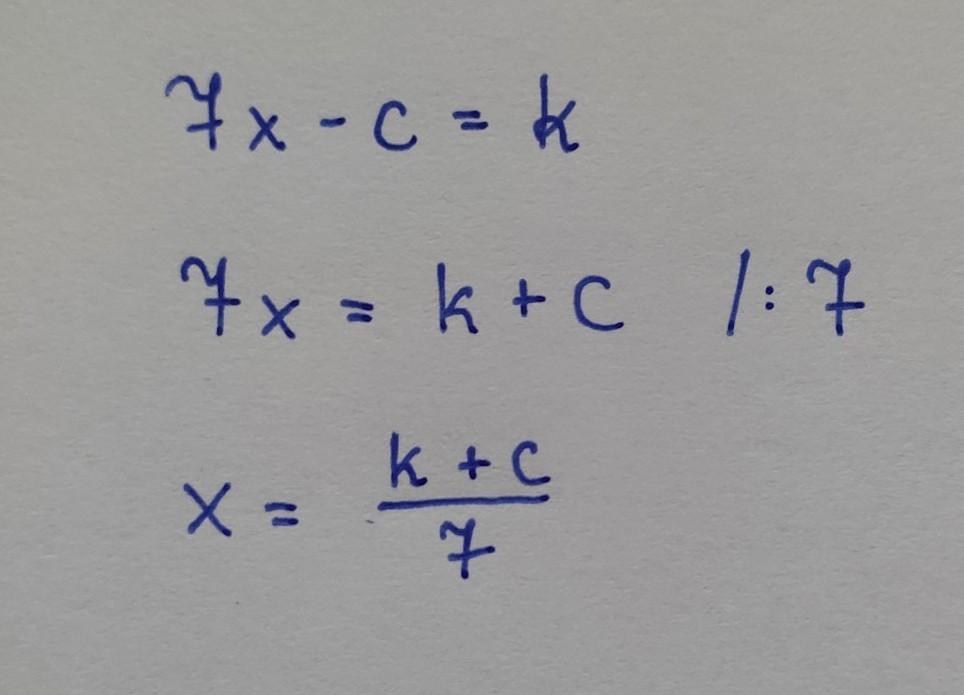 7x - c = k
7x = k + c /: 7
x = (k + c)/7